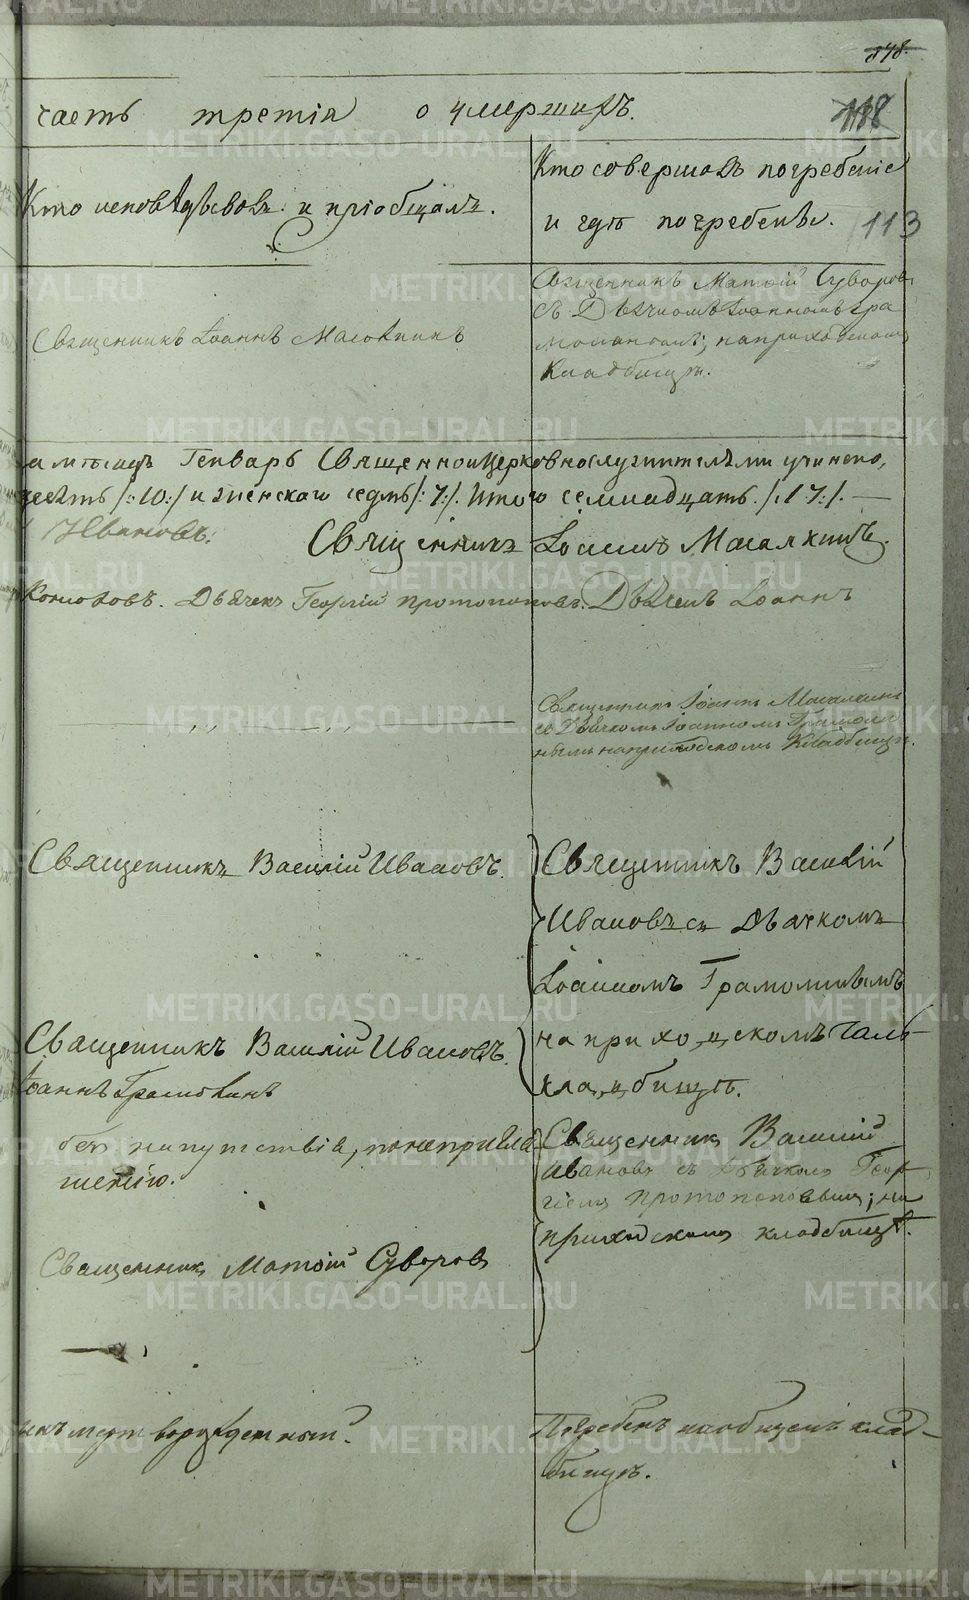 848.
часть третія о умершихъ.
118
Кто исповѣдывовъ и пріобщалъ.
Кто совершалъ погребеніе
и гдѣ погребены.
113
Священникъ Іоаннъ Масалкинъ
Священникъ Матѳій Суворовъ
съ Дьячкомъ Іоанномъ Гра
на приходскомъ
Кладбищѣ.
Генварь Священноцерковнослужителями учинено,
/:10:/ и женскаго седмь /:7:/. Итого семнадцать. /:17:/. —
Ивановъ.
Священникъ Іоаннъ Масалкинъ.
Дьячекъ Георгій Протопоповъ. Дьячекъ Іоаннъ
Священникъ Іоаннъ Масалкинъ
съ Дьячкомъ Іоанномъ Грамоли
нымъ на приходскомъ Кладбищѣ.
Священникъ Василій Ивановъ.
Священникъ Василій
Ивановъ съ Дьячкомъ
Іоанномъ Грамолинымъ
на приходскомъ
кладбищѣ.
Священникъ Василій Ивановъ.
Іоаннъ Грамолинъ
безъ напутствія, по непригла
шенію.
Священникъ Василий
Ивановъ съ Дьячкомъ Геор
гіемъ Протопоповымъ; на
приходскомъ кладбищѣ.
Священникъ Матѳій Суворовъ
мертворожденный.
Погребенъ на общемъ клад-
бищѣ.
METRIKI.GASO-URAL.RU